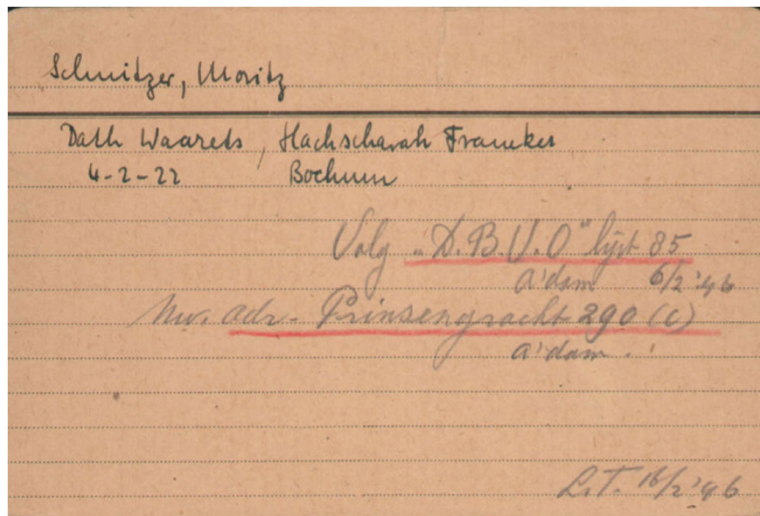 Schnitzer, Moritz
Dath Waarets, Hachscharah Franeker
4-2-22 Bochum
Volg "D.B.V.O" lijst 85
A'dam 6/2 '46
Nw. adr. Prinsengracht 290 (c)
A'dam.
L.T. 16/2 '46